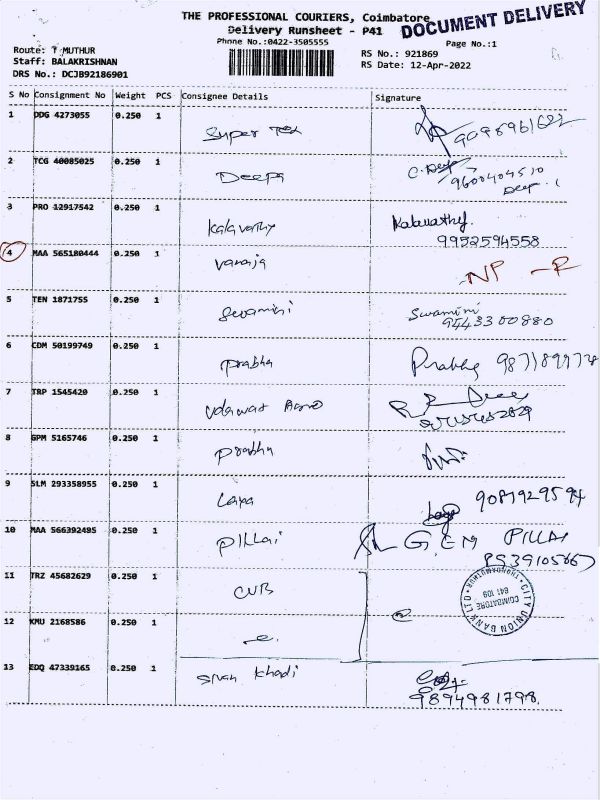 THE PROFESSIONAL COURIERS, Coimbatore
DOCUMENT DELIVERY
Delivery Runsheet - P41
Phone No.:0422-3505555
Page No.:1
Route: T MUTHUR
RS No.: 921869
Staff: BALAKRISHNAN
RS Date: 12-Apr-2022
DRS No.: DCJB92186901
S No Consignment No Weight PCS Consignee Details Signature
1 DDG 4273055 0.250 1 Super Tex
2 TCG 40085025 0.250 1 Deepa C. Deep
9600404510
Deep
3 PRO 12917542 0.250 1 Kalavathy Kalavathy
9952594558
4 MAA 565180444 0.250 1 Vanaja NP - R
5 TEN 1871755 0.250 1 Swamini Swamini
9443300880
6 CDM 50199749 0.250 1 Prabha Prabha
7 TRP 1545420 0.250 1 Udawat Agro
8 GPM 5165746 0.250 1 Prabha
9 SLM 293358955 0.250 1 Laya
10 MAA 566392495 0.250 1 Pillai G.E.M PILLAI
11 TRZ 45682629 0.250 1 CUB
CITY UNION BANK LTD
THONDAMUTHUR
COIMBATORE
641 109
12 KMU 2168586 0.250 1
13 EDQ 47339165 0.250 1 Sivan Khadi
9894981798